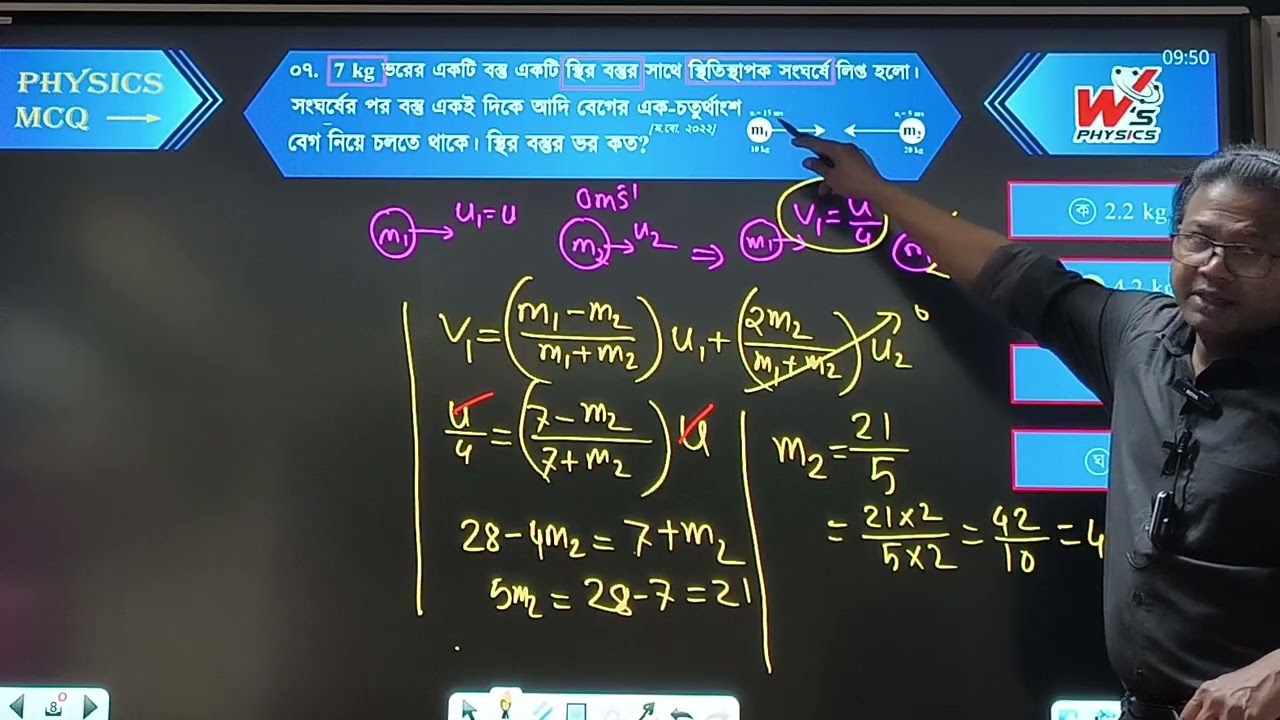 PHYSICS
MCQ
০৭. 7 kg ভরের একটি বস্তু একটি স্থির বস্তুর সাথে স্থিতিস্থাপক সংঘর্ষে লিপ্ত হলো।
সংঘর্ষের পর বস্তু একই দিকে আদি বেগের এক-চতুর্থাংশ
বেগ নিয়ে চলতে থাকে। স্থির বস্তুর ভর কত?
[ম.বো. ২০২২]
m₁
10 kg
m₂
20 kg
09:50
W's
PHYSICS
ক 2.2 kg
4.2 kg
ঘ
m₁ → u₁=u
0ms⁻¹
m₂ → u₂
⇒ m₁ → v₁=u/4
v₁=((m₁-m₂)/(m₁+m₂))u₁+((2m₂)/(m₁+m₂))u₂
0
u/4=((7-m₂)/(7+m₂))u
28-4m₂=7+m₂
5m₂=28-7=21
m₂=21/5
=(21×2)/(5×2)=42/10=4
8